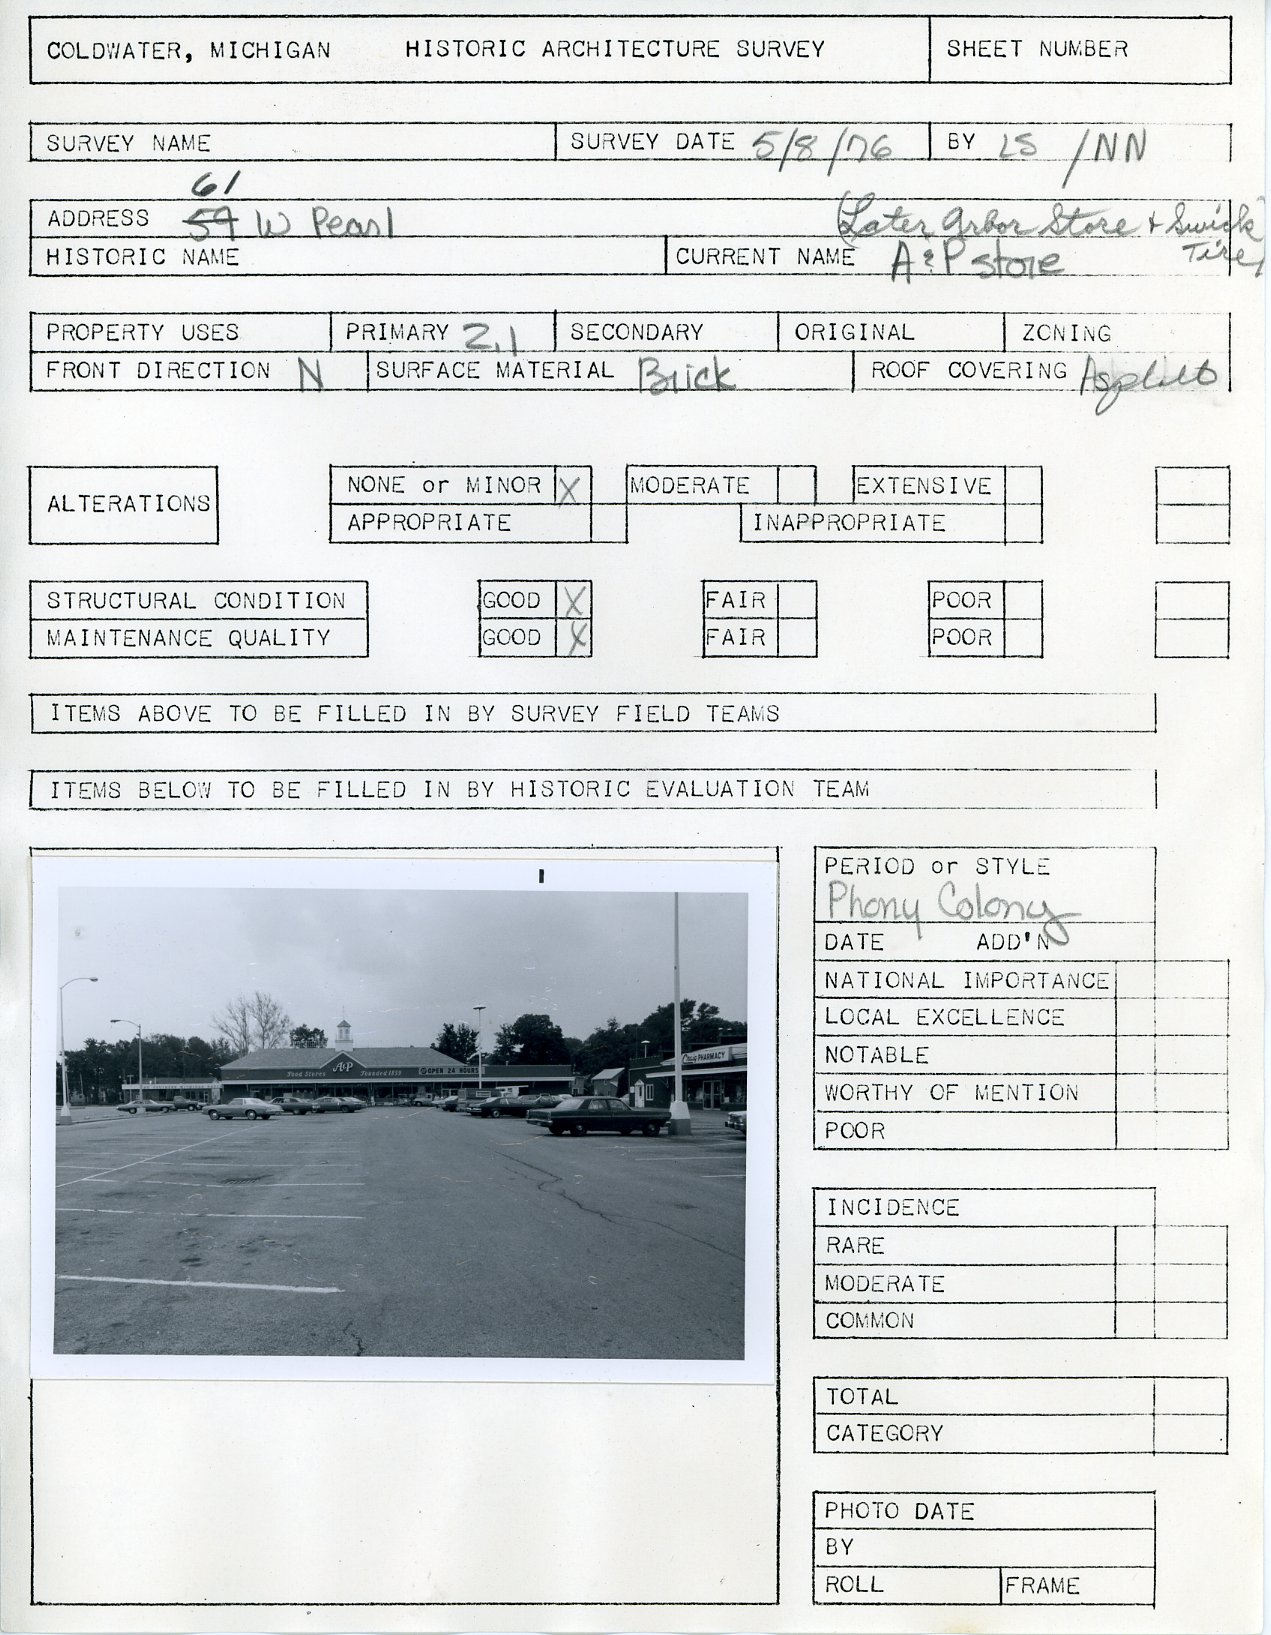 COLDWATER, MICHIGAN HISTORIC ARCHITECTURE SURVEY SHEET NUMBER
SURVEY NAME SURVEY DATE 5/8/76 BY LS /NN
61
ADDRESS 59 W Pearl (Later Arbor Store & Swick
HISTORIC NAME CURRENT NAME A&P store Tire)
PROPERTY USES PRIMARY 2.1 SECONDARY ORIGINAL ZONING
FRONT DIRECTION N SURFACE MATERIAL Brick ROOF COVERING Asphalt
ALTERATIONS
NONE or MINOR X MODERATE EXTENSIVE
APPROPRIATE INAPPROPRIATE
STRUCTURAL CONDITION GOOD X FAIR POOR
MAINTENANCE QUALITY GOOD X FAIR POOR
ITEMS ABOVE TO BE FILLED IN BY SURVEY FIELD TEAMS
ITEMS BELOW TO BE FILLED IN BY HISTORIC EVALUATION TEAM
Food Stores A&P Founded 1859 OPEN 24 HOURS
Craig PHARMACY
PERIOD or STYLE
Phony Colony
DATE ADD'N
NATIONAL IMPORTANCE
LOCAL EXCELLENCE
NOTABLE
WORTHY OF MENTION
POOR
INCIDENCE
RARE
MODERATE
COMMON
TOTAL
CATEGORY
PHOTO DATE
BY
ROLL FRAME